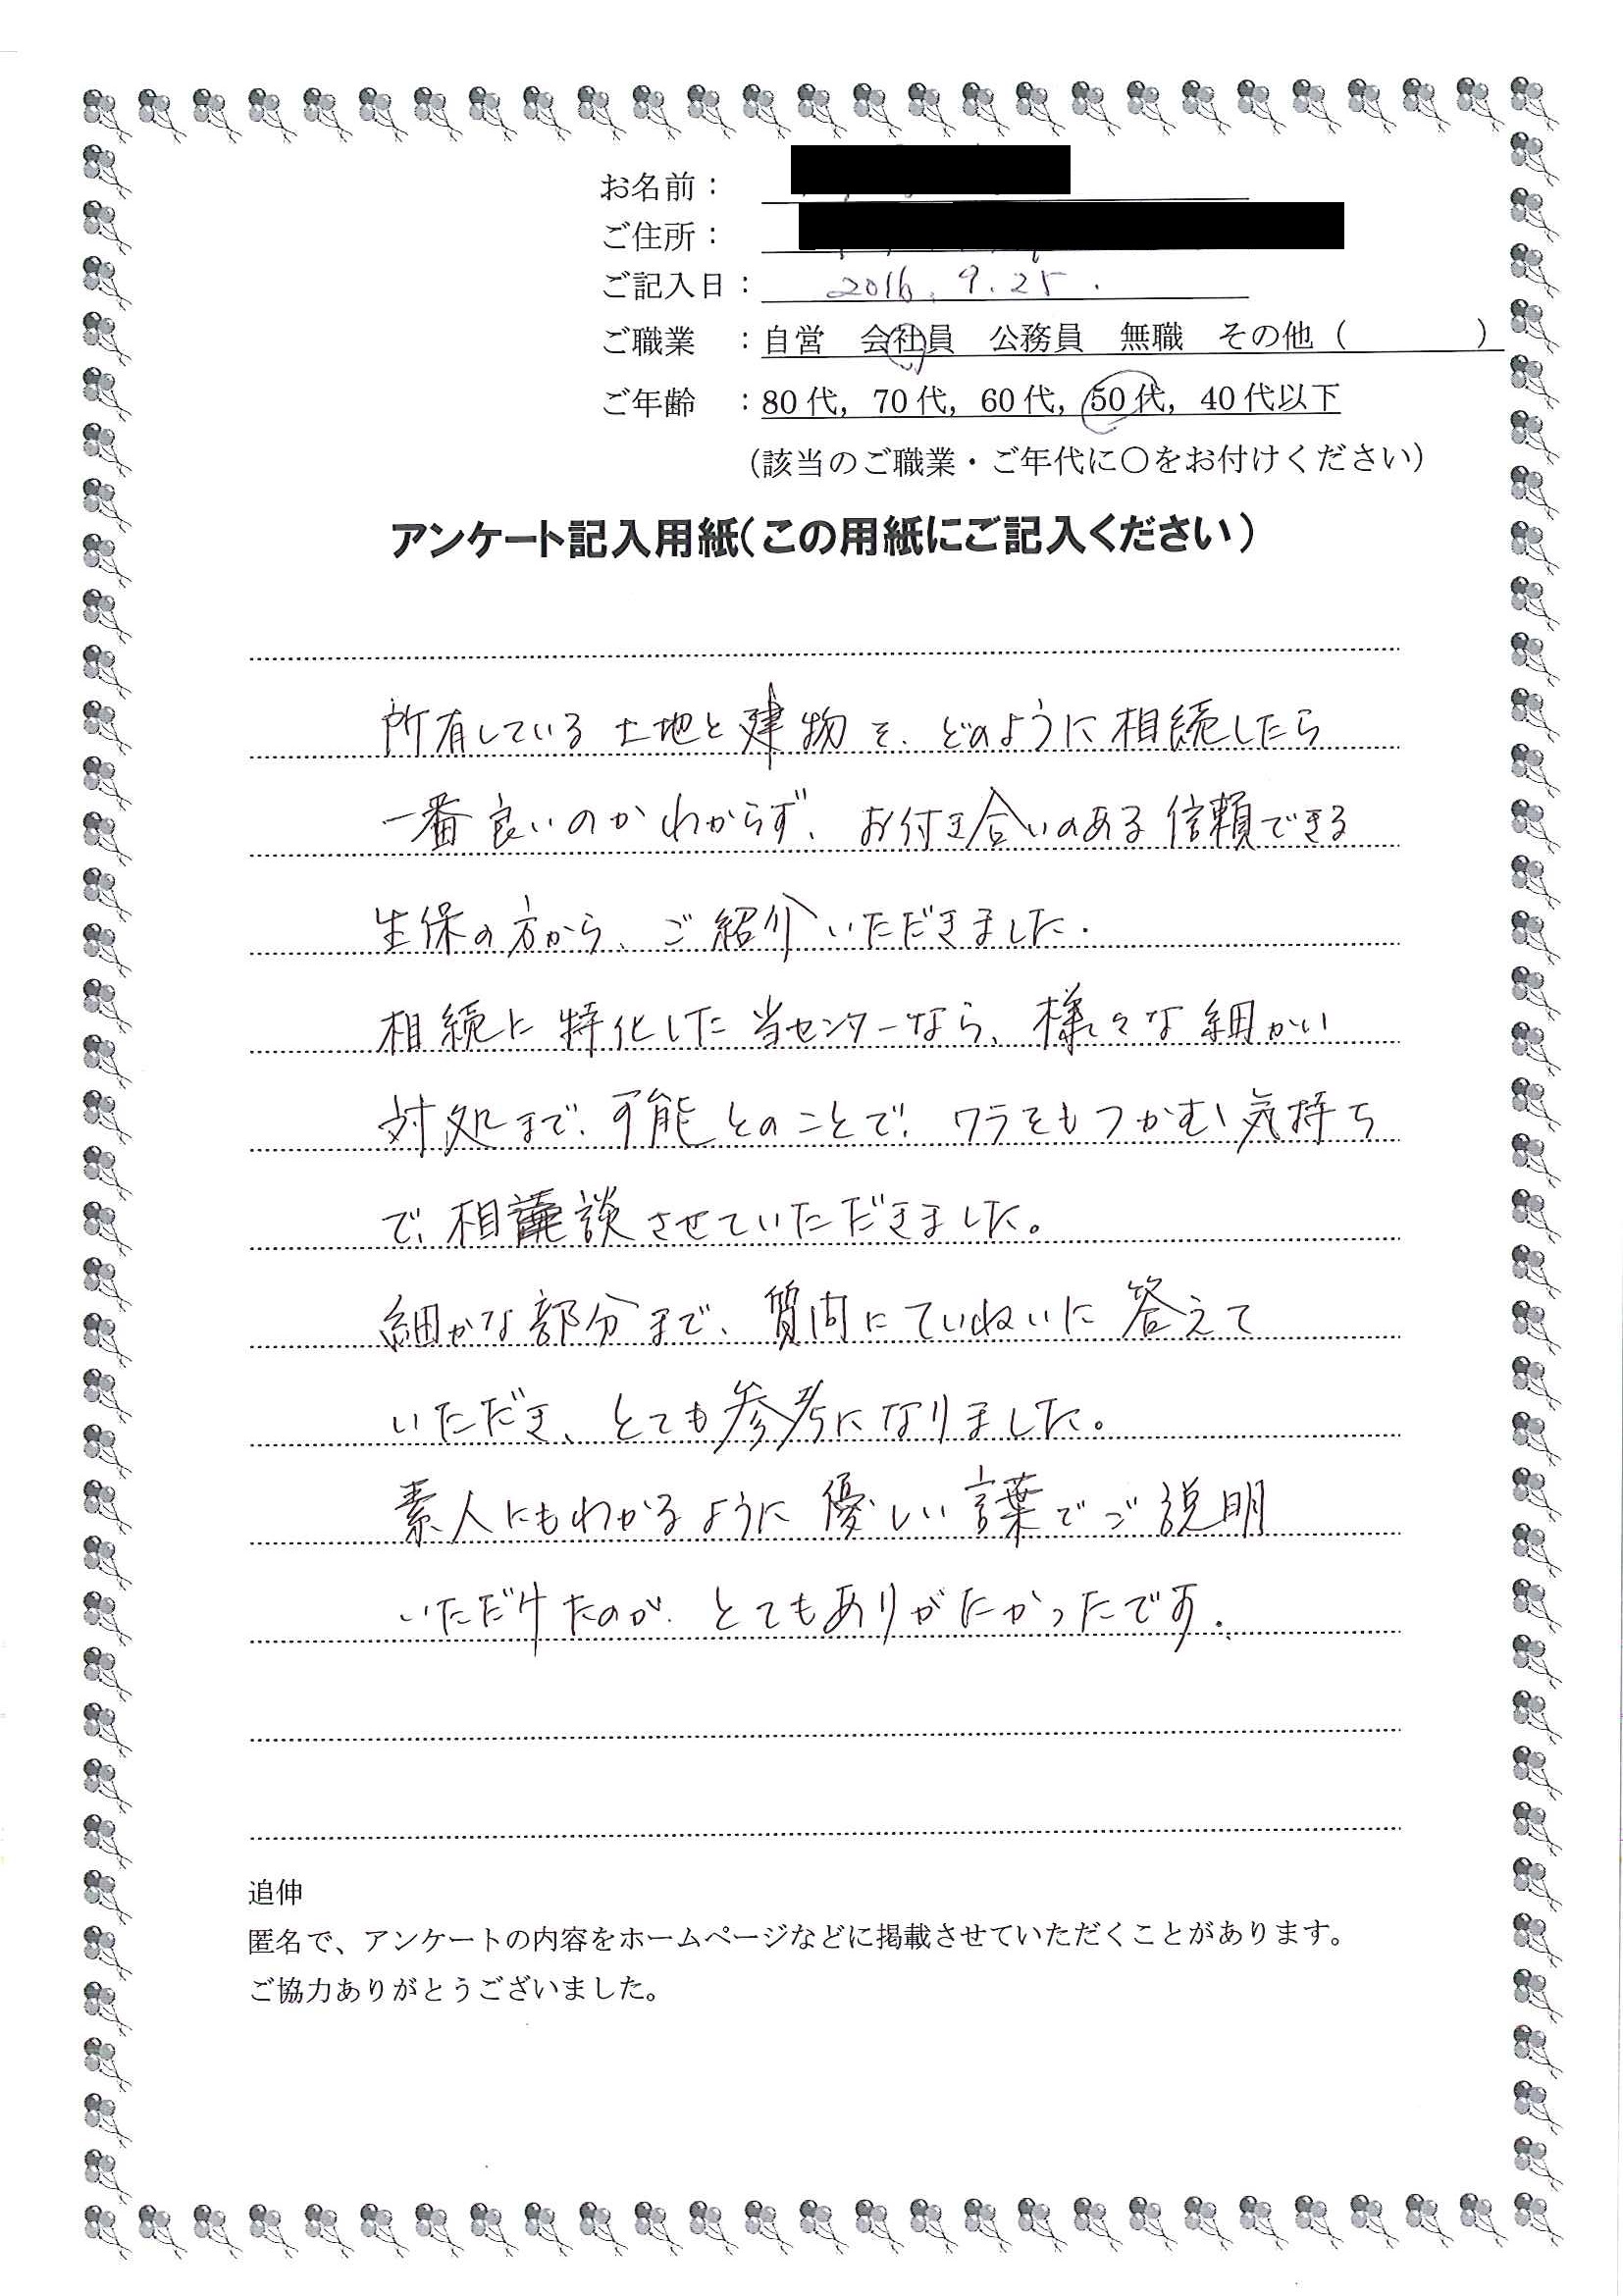 お名前：
ご住所：
ご記入日： 2016. 9. 25.
ご職業 ：自営 会社員 公務員 無職 その他（ ）
ご年齢 ：80代，70代，60代，50代，40代以下
（該当のご職業・ご年代に○をお付けください）
アンケート記入用紙（この用紙にご記入ください）
所有している土地と建物を、どのように相続したら
一番良いのかわからず、お付き合いのある信頼できる
生保の方から、ご紹介いただきました.
相続に特化した当センターなら、様々な細かい
対処まで、可能とのことで、ワラをもつかむ気持ち
で、相談させていただきました。
細かな部分まで、質問にていねいに答えて
いただき、とても参考になりました。
素人にもわかるように優しい言葉でご説明
いただけたのが、とてもありがたかったです.
追伸
匿名で、アンケートの内容をホームページなどに掲載させていただくことがあります。
ご協力ありがとうございました。